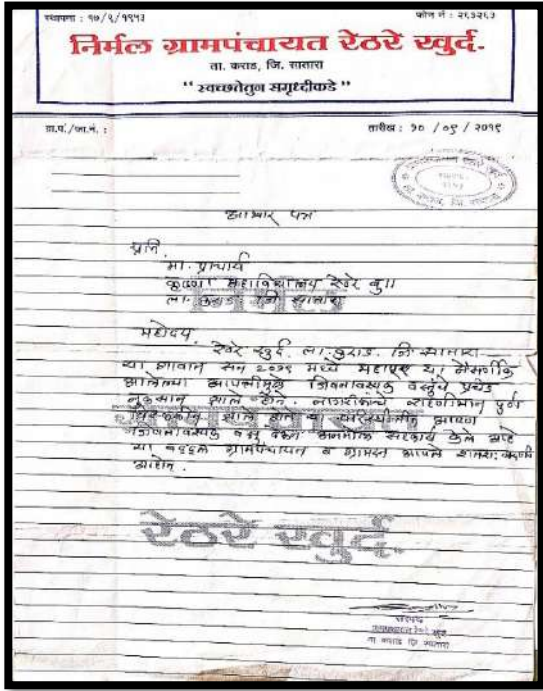 स्थापना : १७/९/१९५३
फोन नं : २६३२६३
निर्मल ग्रामपंचायत रेठरे खुर्द.
ता. कराड, जि. सातारा
" स्वच्छतेतुन समृध्दीकडे "
ग्रा.पं./जा.नं. :
तारीख : १० / ०९ / २०१९
आभार पत्र
प्रति,
मा. प्राचार्य
कृष्णा महाविद्यालय रेठरे बु॥
ता. कराड जि सातारा
महोदय,
रेठरे खुर्द. ता. कराड. जि. सातारा
या गावात सन २०१९ मध्ये महापूर या नैसर्गिक
आलेल्या आपत्तीमुळे जिवनावश्यक वस्तूंचे प्रचंड
नुकसान झाले होते. नागरीकांचे राहणीमान पुर्ण
झाले होते या परिस्थितीत आपण
जिवनावश्यक वस्तू देऊन अनमोल सहकार्य केले आहे
त्या बद्दल ग्रामपंचायत व ग्रामस्थ आपले शतशः ऋणी
आहोत.
निर्मल
ग्रामपंचायत
रेठरे खुर्द.
सरपंच
ग्रामपंचायत रेठरे खुर्द
ता कराड जि सातारा